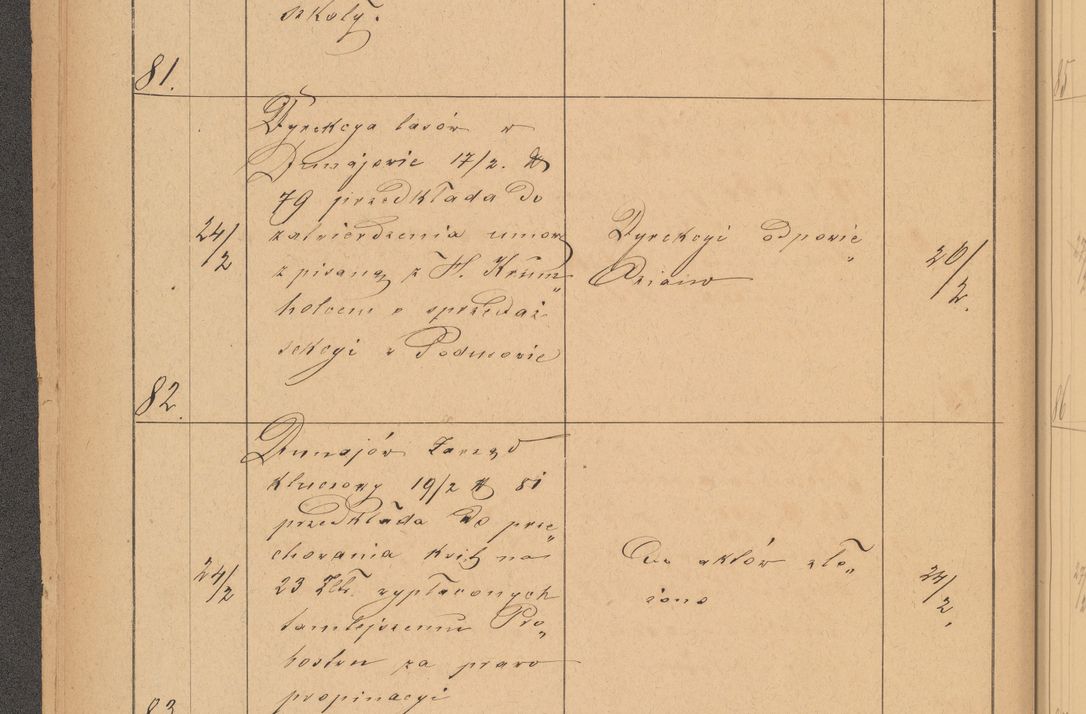 szkoły.
81.
Dyrekcya lasów w
Dunajowie 17/2. N
79 przedkłada do
zatwierdzenia umowę
24/2
spisaną z H. Krum„
holcem o sprzedaż
sekcyi w Podusowie
Dyrekcyi odpowie„
dziano
26/2.
82.
Dunajów Zarząd
kluczowy 19/2 N 81
przedkłada do prze„
chowania kwit na
24/2
23 Złr. wypłaconych
tamtejszemu Pro„
bostwu za prawo
propinacyi
Do aktów zło„
żono
24/2.
83.
85
86